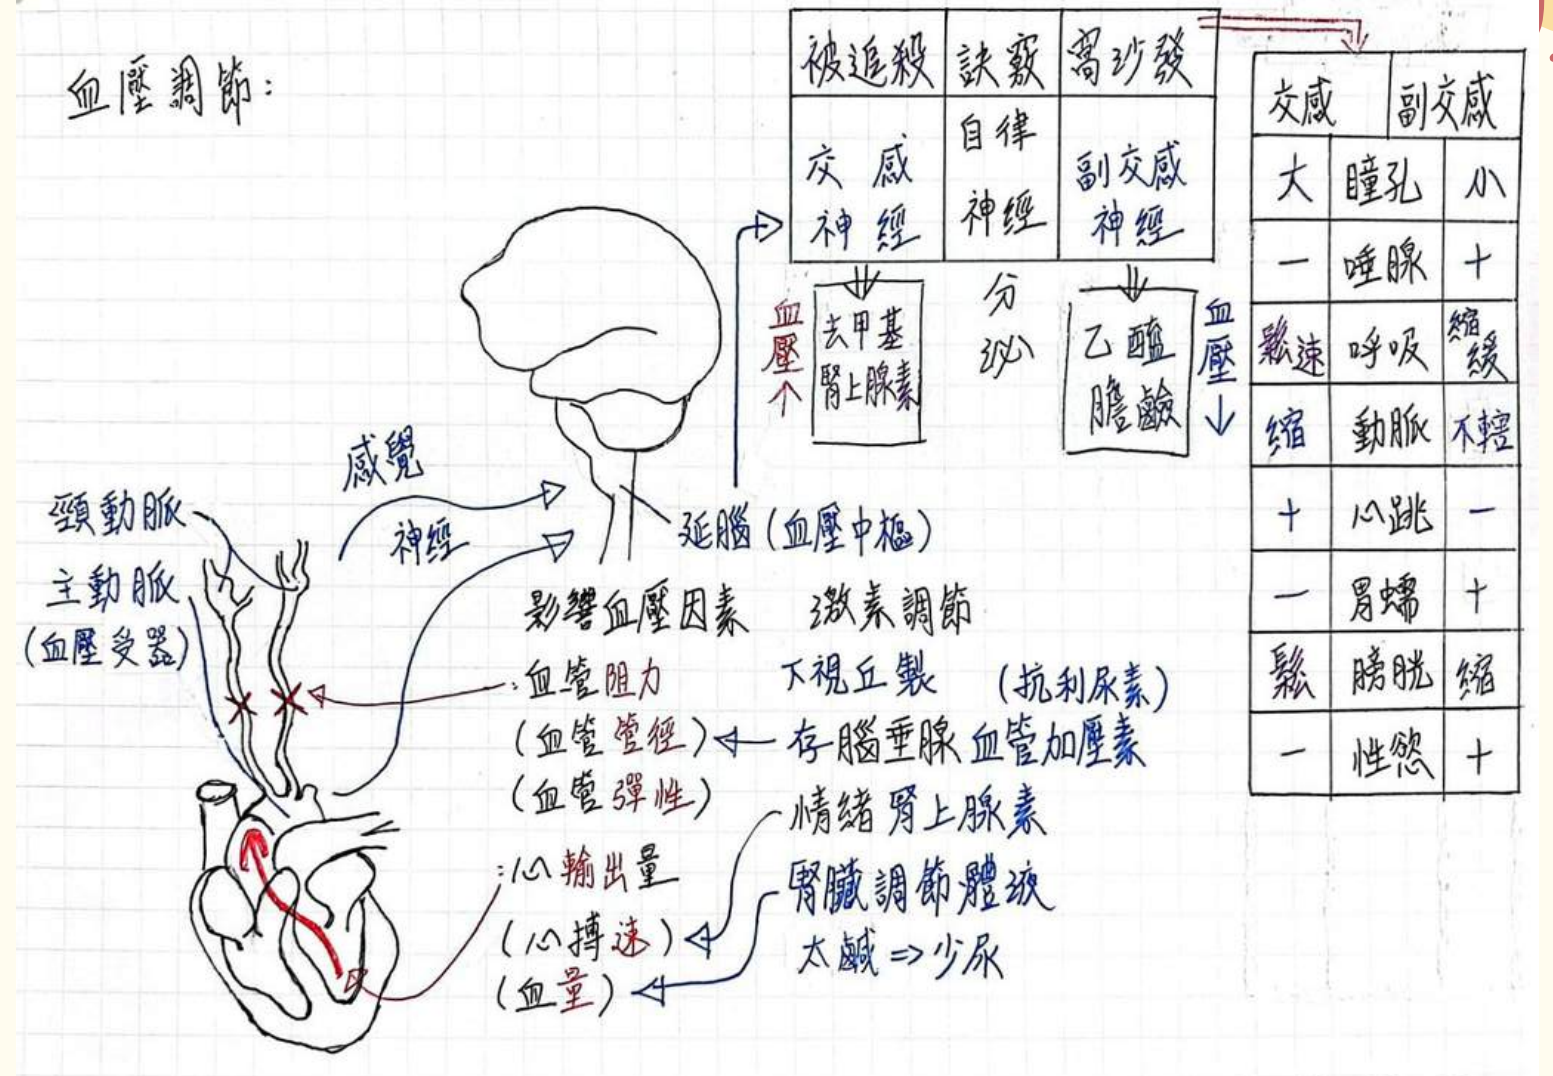 血壓調節:
被追殺 訣竅 窩沙發
交感神經 自律神經 副交感神經
血壓↑ 去甲基腎上腺素 分泌 乙醯膽鹼 血壓↓
交感 副交感
大 瞳孔 小
－ 唾腺 ＋
鬆速 呼吸 縮緩
縮 動脈 不轄
＋ 心跳 －
－ 胃蠕 ＋
鬆 膀胱 縮
－ 性慾 ＋
感覺
神經
頸動脈
主動脈
(血壓受器)
延腦(血壓中樞)
影響血壓因素
:血管阻力
(血管管徑)
(血管彈性)
:心輸出量
(心搏速)
(血量)
激素調節
下視丘製 (抗利尿素)
存腦垂腺血管加壓素
情緒腎上腺素
腎臟調節體液
太鹹⇒少尿